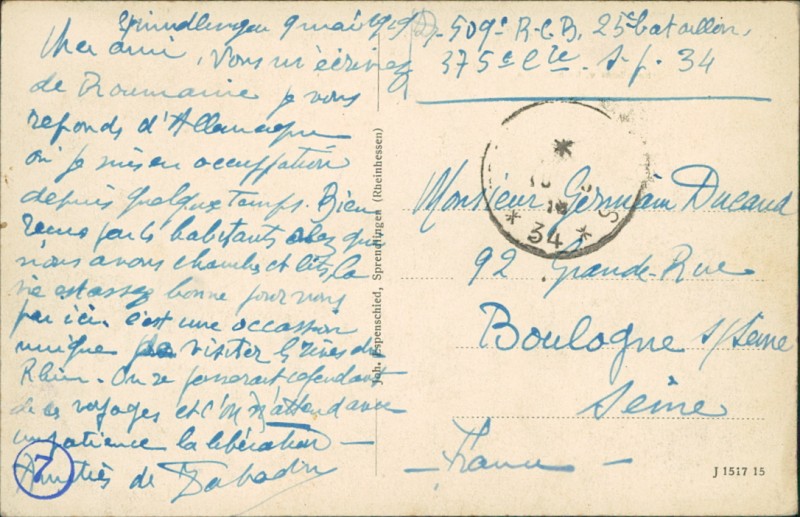 Sprendlingen 9 mai 1919
Cher ami, Vous m'écrivez
de Roumanie je vous
reponds d'Allemagne
où je suis en occupation
depuis quelque temps. Bien
reçus par les habitants chez qui
nous avons chambre et lits, la
vie est assez bonne pour nous
par ici. C'est une occasion
unique de visiter les rives du
Rhin. On se passerait cependant
de ces voyages et l'on attend avec
impatience la libération —
Amitiés de
2
509e R.C.B. 25e bataillon,
375e Cie. S.p. 34
* 34 *
Monsieur Germain Ducaud
92 Grande-Rue
Boulogne s/Seine
Seine
— France —
Joh. Espenschied, Sprendlingen (Rheinhessen)
J 1517 15